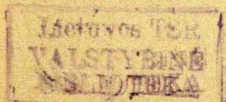 Lietuvos TSR
VALSTYBINĖ
BIBLIOTEKA